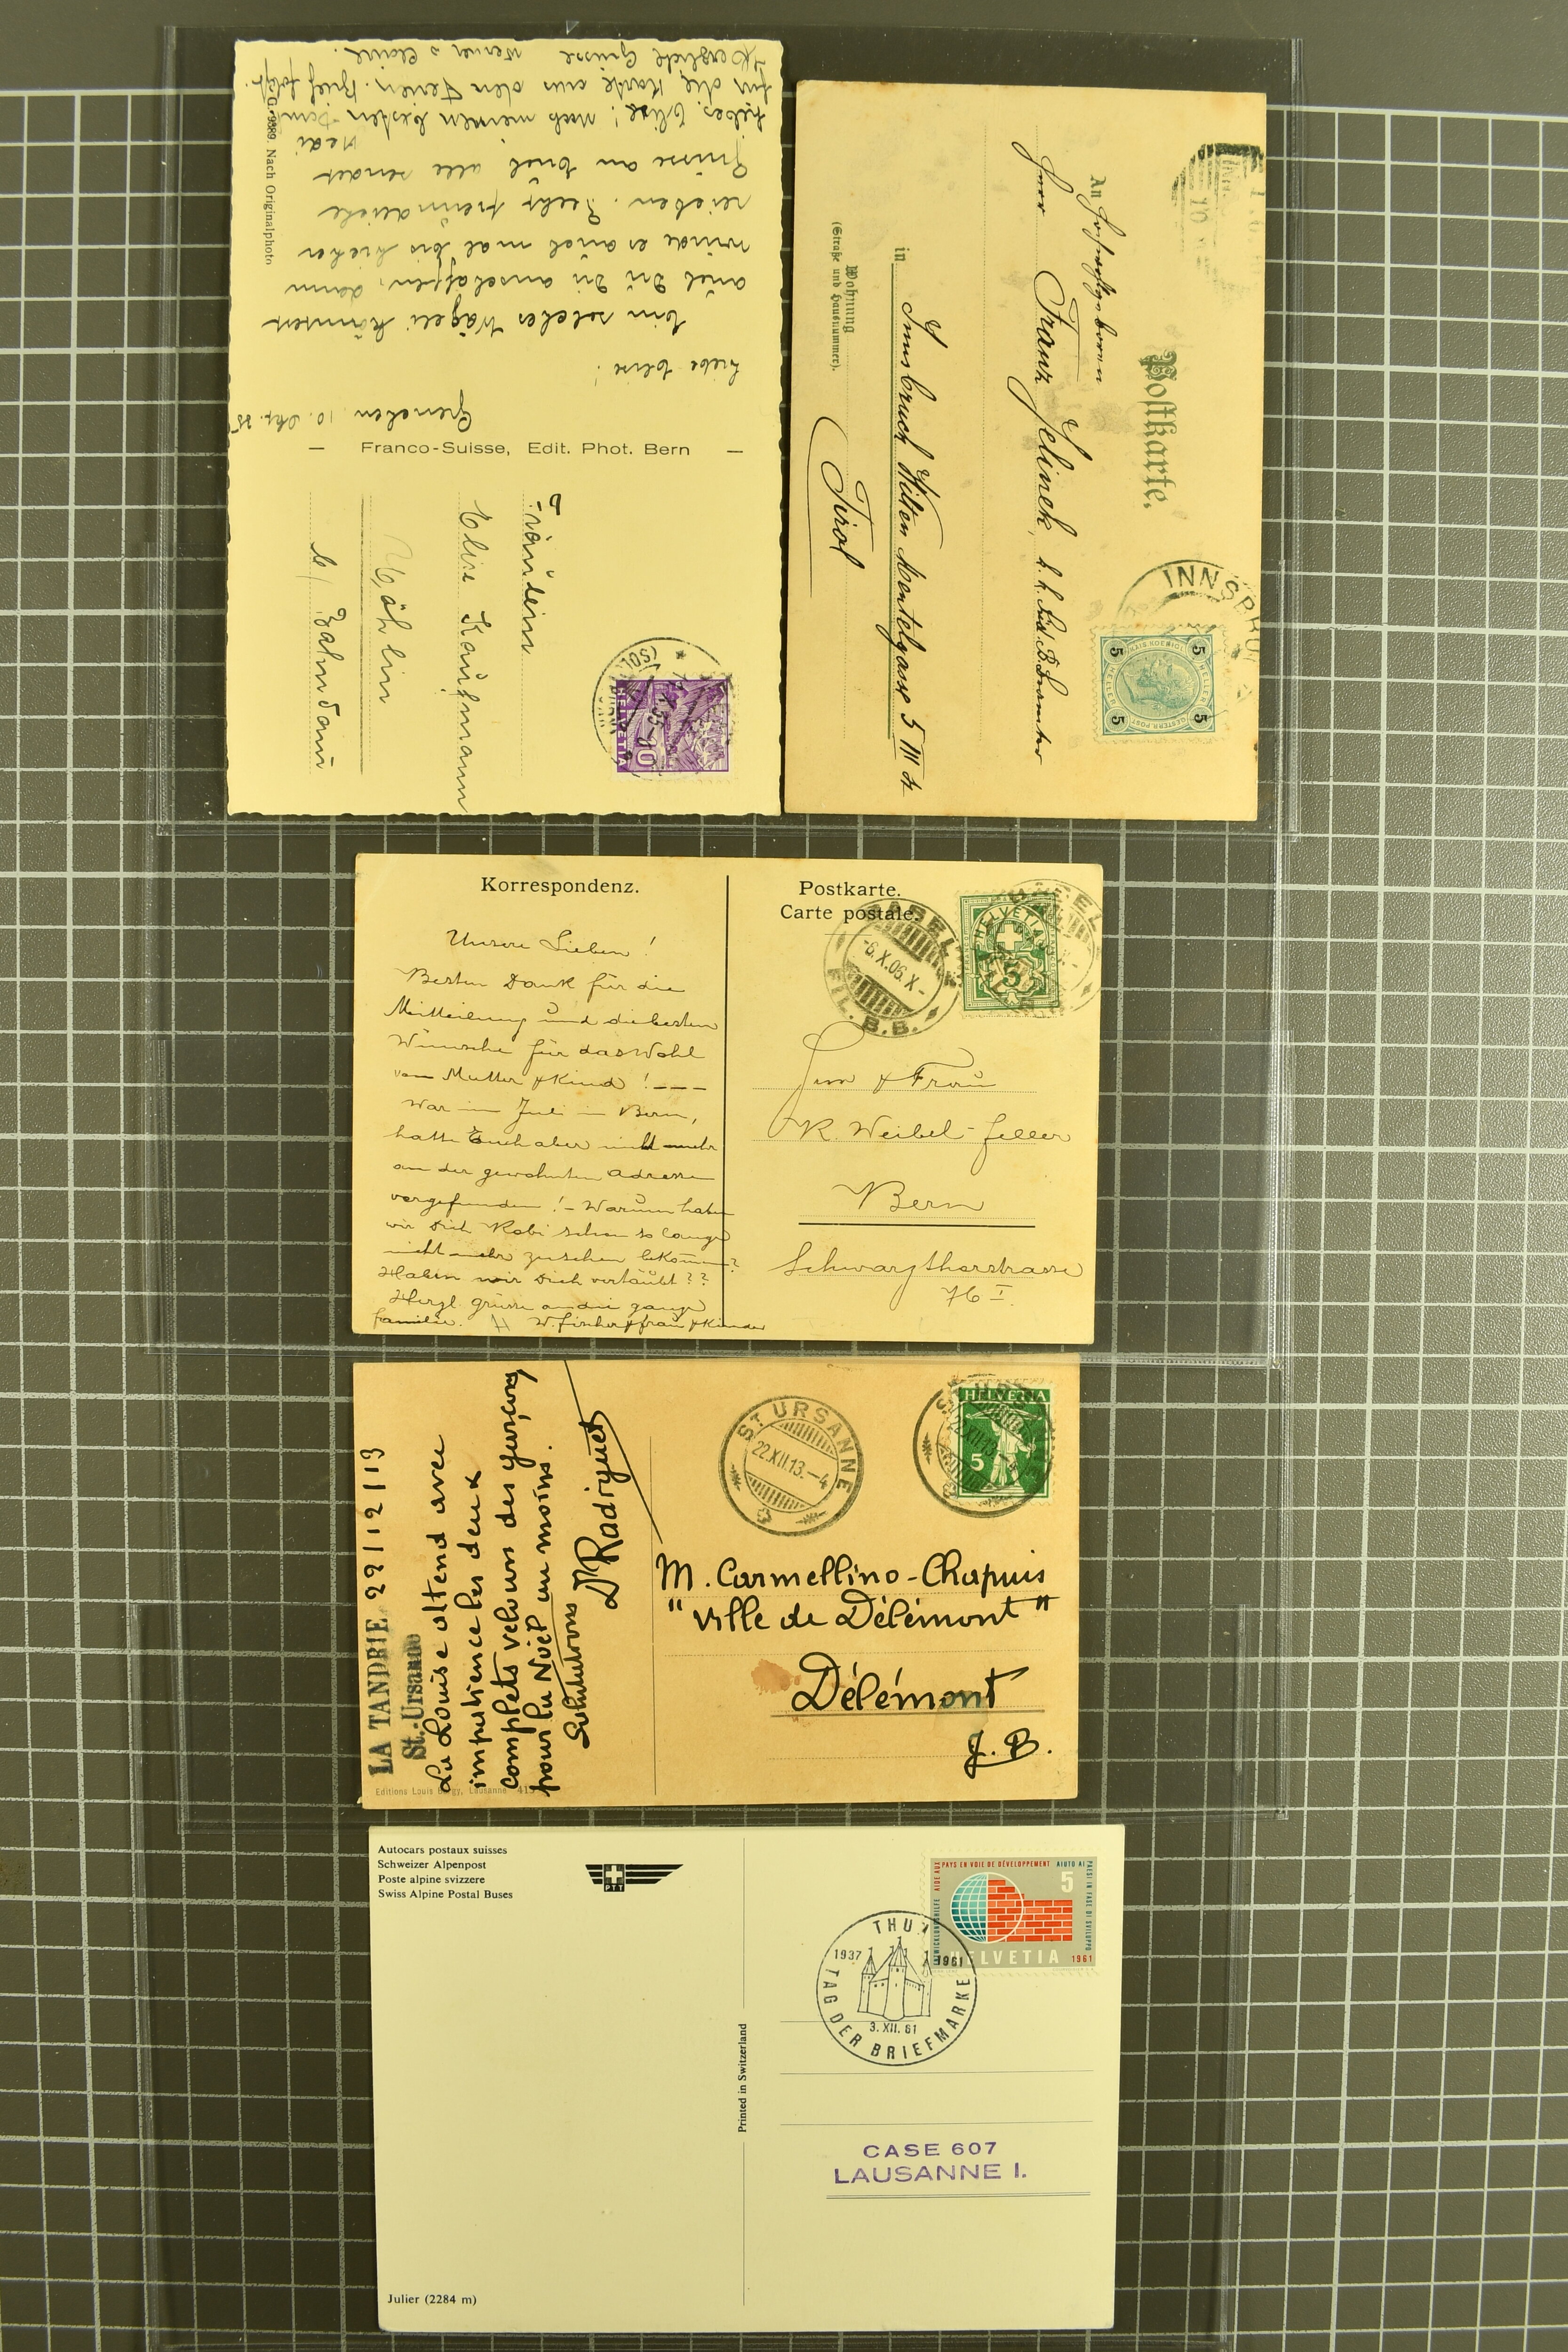 G. 9889. Nach Originalphoto
Grenchen, 10. Okt. 35
Liebe Elise!
Ein solches Wägeli könntest
auch Du anschaffen, dann
würde es auch mal bis hieher
reichen. Recht freundliche
Grüsse an Euch alle sendet
Liebes Elise! Noch meinen besten Dank
für die Karte aus den Ferien. Brief folgt.
Herzliche Grüsse Werner
Franco-Suisse, Edit. Phot. Bern
Fräulein
Elise Kaufmann
Möhlin
b/ Bahndamm
HELVETIA
10
Postkarte.
An Hochwohlgeboren
Herr Franz Jelinek,
in Innsbruck Wilten Mentelgasse 5 III St
Tirol
Wohnung
(Straße und Hausnummer).
INNSBRUCK
5 5
5 5
HELLER
Korrespondenz.
Unsere Lieben!
Besten Dank für die
Mitteilung und die besten
Wünsche für das Wohl
von Mutter & Kind! – – –
War im Juli in Bern,
hatte Euch aber nicht mehr
an der gewohnten Adresse
vorgefunden! – Warum haben
wir Dich Robi schon so lange
nicht mehr zu sehen bekommen?
Haben wir Dich vertäubt??
Herzl. Grüsse an die ganze
Familie. W. Fischer & Frau & Kinder
Postkarte.
Carte postale.
BASEL
-6.X.06.X-
FIL. B.B.
HELVETIA
5
Herrn & Frau
R. Weibel-Feller
Bern
Schwarzthorstrasse
76 I.
LA TANDRIE 22/12/13
St.-Ursanne
La Louise attend avec
impatience les deux
complets velours des garçons
pour la Noël au moins.
Salutations
Dr Radiguet
Editions Louis Burgy, Lausanne
ST. URSANNE
22.XII.13.–4
HELVETIA
5
M. Carmellino-Chapuis
"Ville de Délémont"
Délémont
J. B.
Autocars postaux suisses
Schweizer Alpenpost
Poste alpine svizzere
Swiss Alpine Postal Buses
PTT
Julier (2284 m)
Printed in Switzerland
ENTWICKLUNGSHILFE AIDE AUX PAYS EN VOIE DE DÉVELOPPEMENT AIUTO AI PAESI IN FASE DI SVILUPPO
5
HELVETIA 1961
THUN
1937 1961
3. XII. 61
TAG DER BRIEFMARKE
CASE 607
LAUSANNE I.